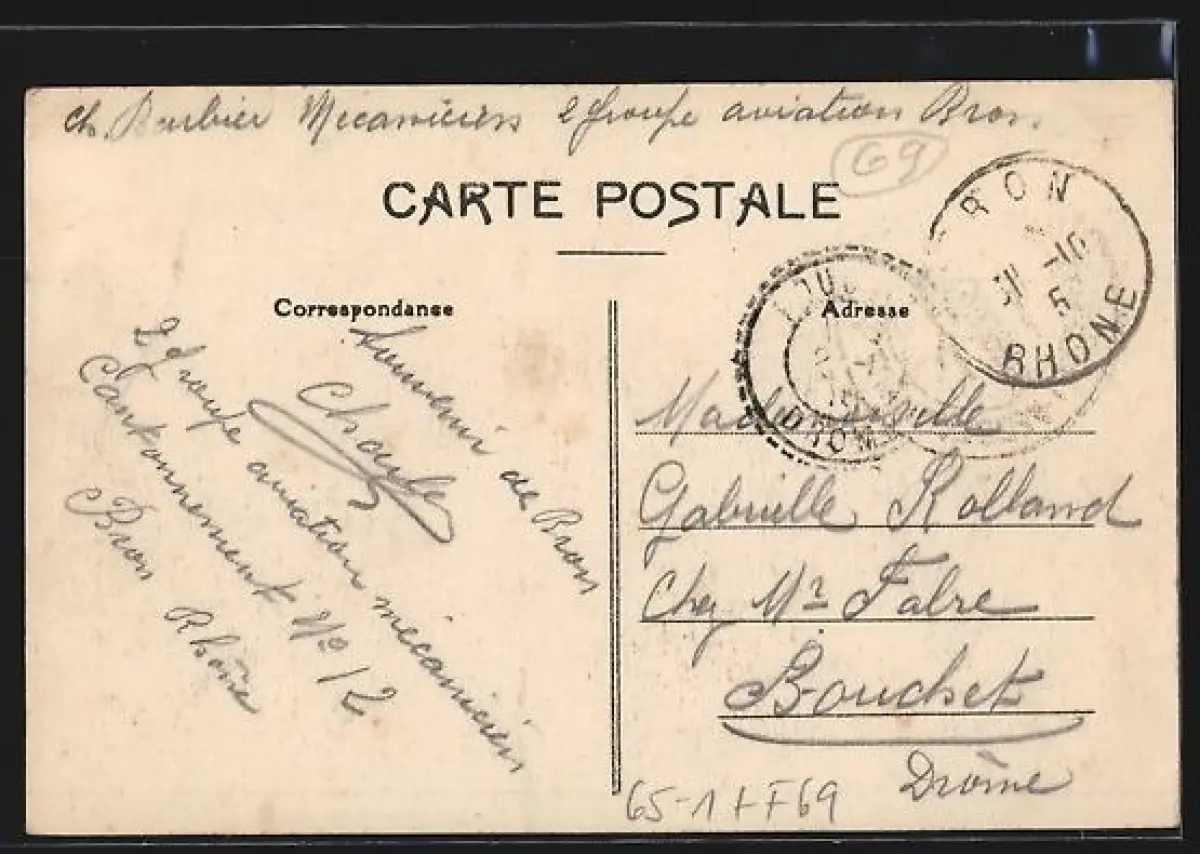 Ch. Barbier Mecaniciens 2 groupe aviation Bron
69
CARTE POSTALE
BRON
31 -10
5
RHONE
Correspondanse
Adresse
DROME
Souvenir de Bron
Charles
2 groupe aviation mécanicien
Cantonnement No 12
Bron Rhône
Mademoiselle
Gabrielle Rolland
Chez Mr Fabre
Bouchet
Drôme
65-1++F69